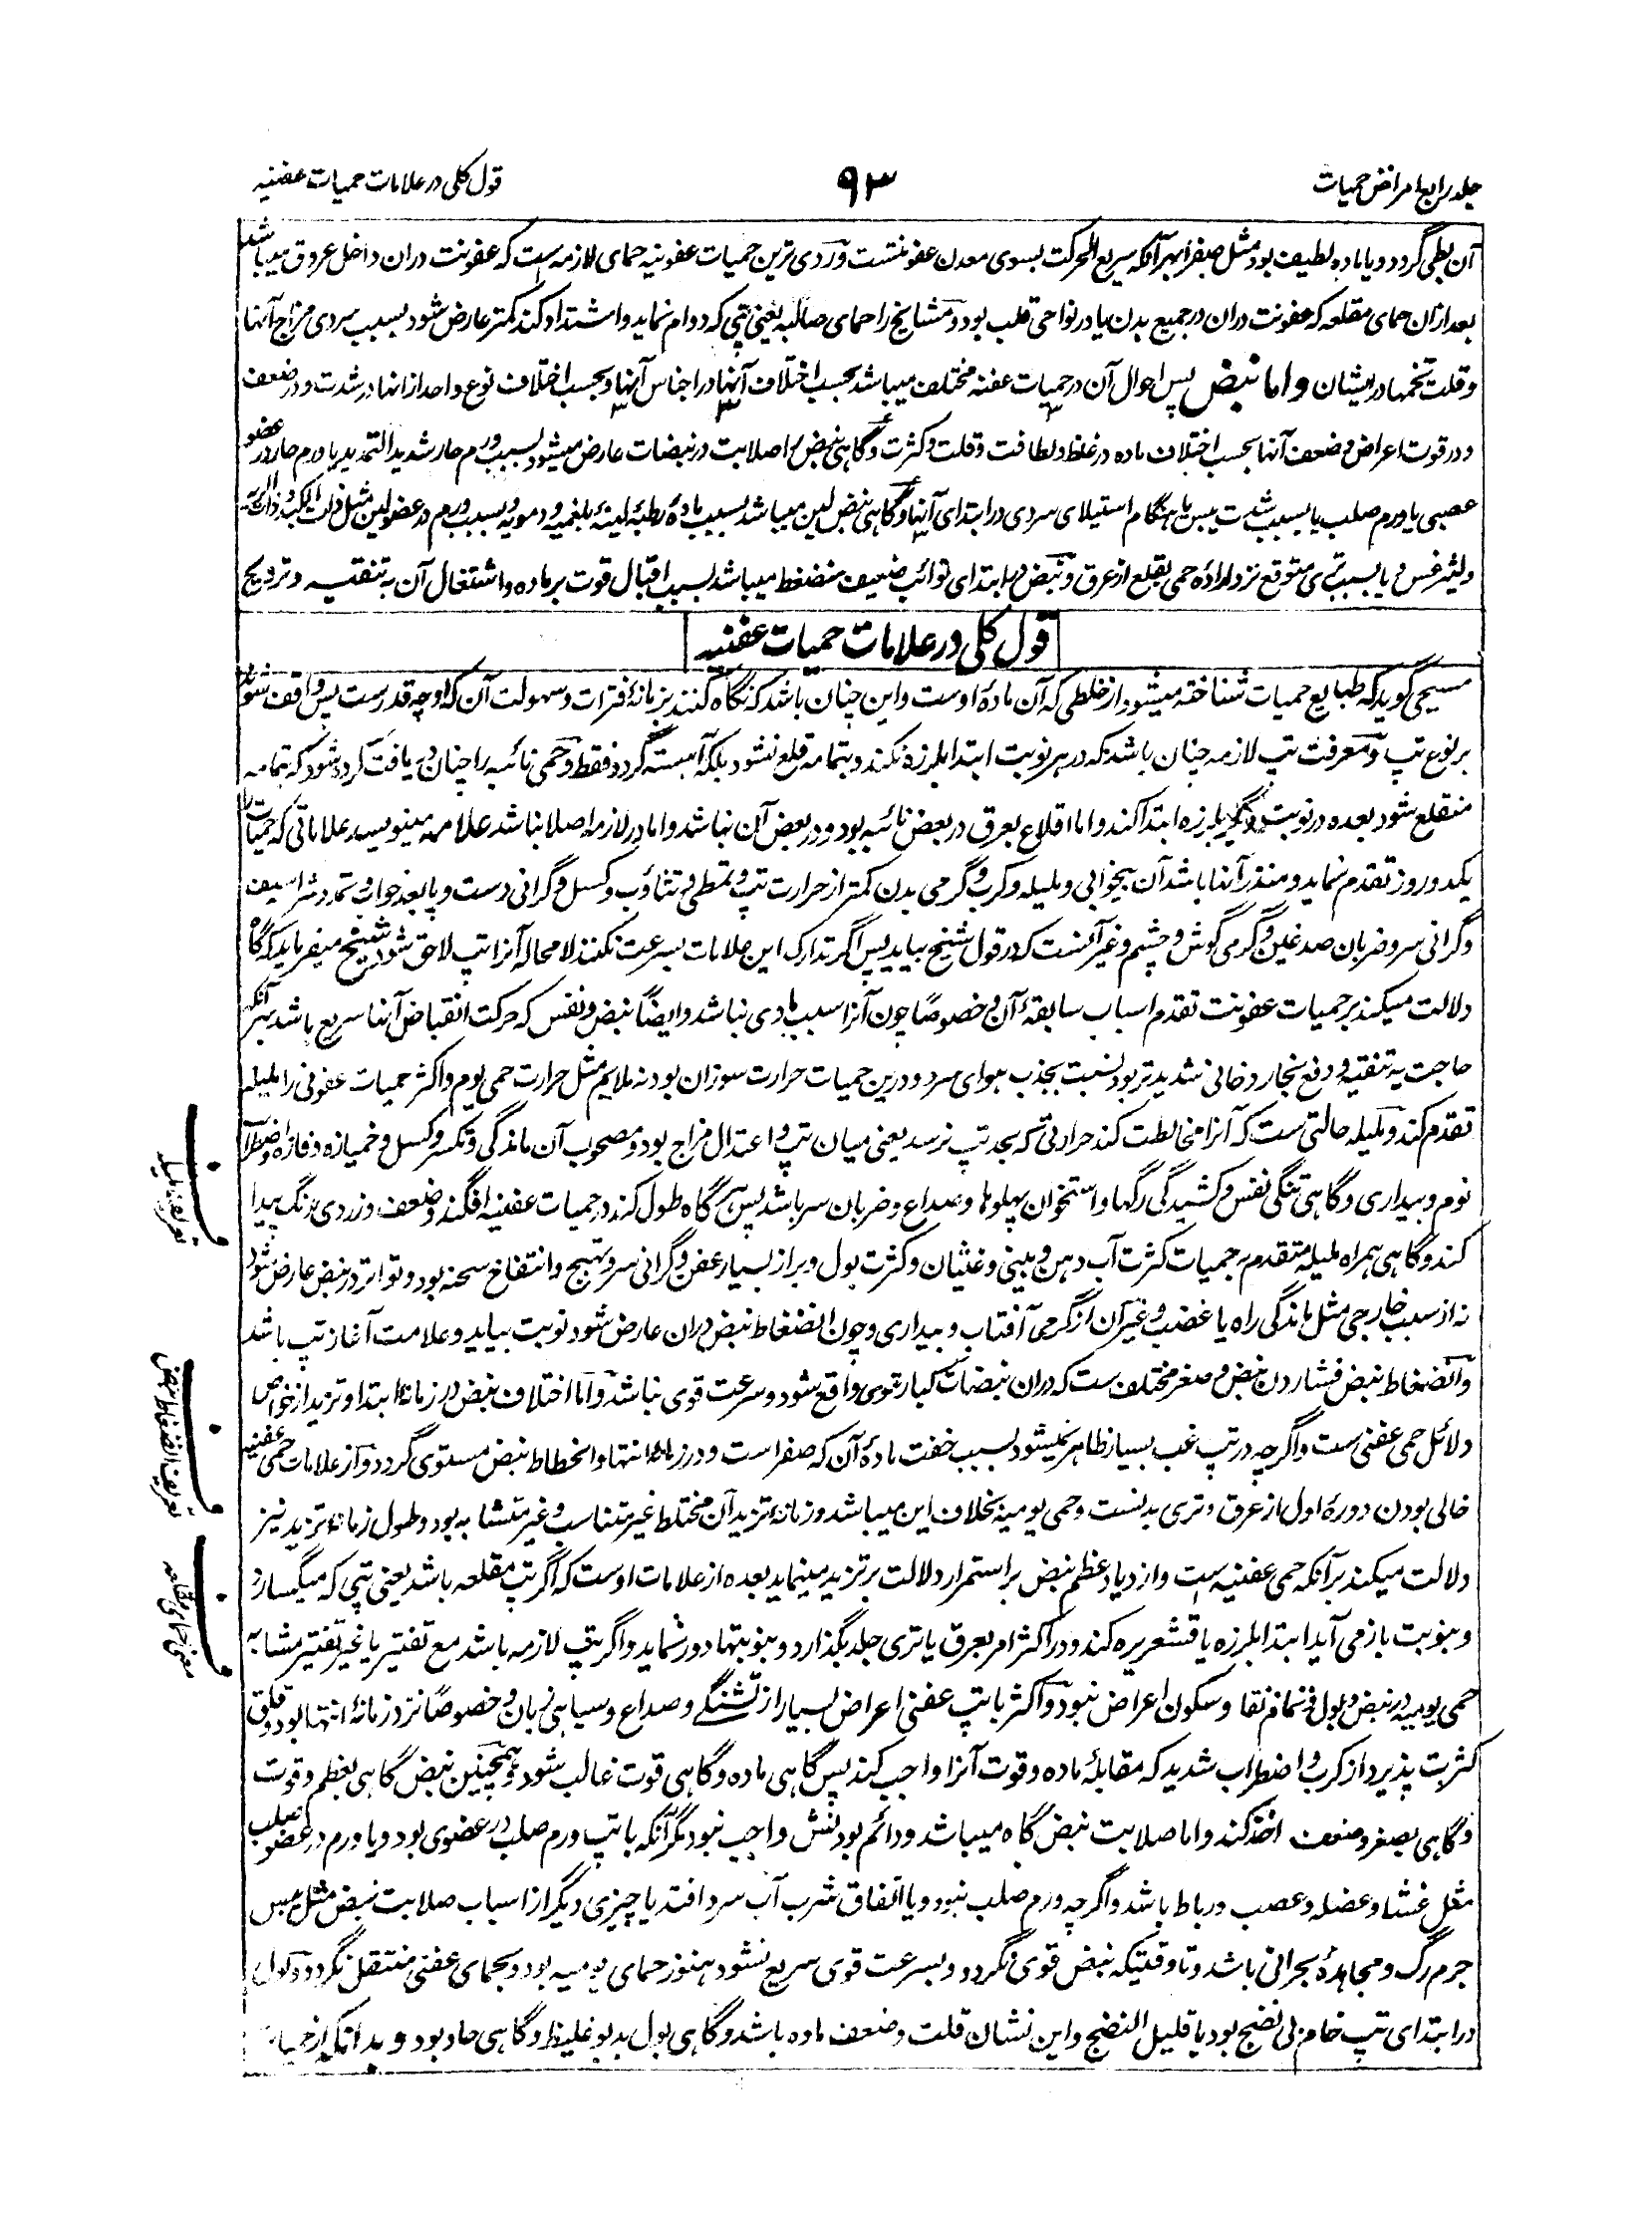 جلد رابع امراض حمیات
۹۳
قول کلی در علامات حمیات عفنیه
آن بطی گردد و یا ماده لطیف بود مثل صفرا بهر آنکه سریع الحرکت بسوی معدن عفونتست و ردی ترین حمیات عفونیه حمای لازمه است که عفونت دران داخل عروق میباشد
بعد ازان حمای مقلعه که عفونت دران در جمیع بدن یا در نواحی قلب بود و مشایخ را حمای صالبه یعنی تپی که دوام نماید و اشتداد کند کمتر عارض شود بسبب سردی مزاج آنها
و قلت تخمها در ایشان واما نبض پس احوال آن در حمیات عفنه مختلف میباشد بحسب اختلاف آنها در اجناس آنها و بحسب اختلاف نوع واحد از انها در شدت و در ضعف
و در قوت اعراض و ضعف آنها بحسب اختلاف ماده در غلظ و لطافت و قلت و کثرت و گاهی نبض را صلابت در نبضات عارض میشود بسبب ورم حار شدید التمدید یا ورم حار در عضو
عصبی یا ورم صلب یا بسبب شدت یبس یا هنگام استیلای سردی در ابتدای آنها و گاهی نبض لین میباشد بسبب ماده رطبه لینه بلغمیه و دمویه و بسبب ورم در عضو لین مثل ذات الکبد و ذات الریه
ولیثرغس و یا بسبب تری متوقع نزد اراده حمی بقلع از عرق و نبض در ابتدای نوائب ضعیف منضغط میباشد بسبب اقبال قوت بر ماده و اشتغال آن به تنقیه و ترویح
قول کلی در علامات حمیات عفنیه
مسیحی گوید که طبایع حمیات شناخته میشود از خلطی که آن ماده اوست و این چنان باشد که نگاه کنند بزمانه فترات و سهولت آن که او چه قدرست پس واقف شوند
بر نوع تپ و معرفت تپ لازمه چنان باشد که در هر نوبت ابتدا بلرزه نکند و بتمامه قلع نشود بلکه آهسته گردد فقط و حمی نائبه را چنان دریافت کرده شود که بتمامه
منقلع شود بعده در نوبت دیگر بلرزه ابتدا کند واما اقلاع بعرق در بعض نائبه بود و در بعض آن نباشد واما در لازمه اصلا نباشد علامه مینویسد علاماتی که حمیات را
یکدو روز تقدم نماید و منذر آنها باشد آن بیخوابی و ملیله و کرب و گرمی بدن کمتر از حرارت تپ و تمطی و تثاؤب و کسل و گرانی دست و پا بعد خواب و تمدد شراسیف
و گرانی سر و ضربان صدغین و گرمی گوش و چشم و غیر آنست که در قول شیخ بیاید پس اگر تدارک این علامات بسرعت نکنند لا محاله آنرا تپ لاحق شود شیخ میفرماید که گاه
دلالت میکند بر حمیات عفونت تقدم اسباب سابقه آن و خصوصاً چون آنرا سبب بادی نباشد و ایضاً نبض و نفس که حرکت انقباض آنها سریع باشد بهر آنکه
حاجت به تنقیه و دفع بخار دخانی شدیدتر بود نسبت بجذب هوای سرد و درین حمیات حرارت سوزان بود نه ملایم مثل حرارت حمی یوم و اکثر حمیات عفونی را ملیله
تقدم کند و ملیله حالتی ست که آنرا مخالطت کند حرارتی که بحد تپ نرسد یعنی میان تپ و اعتدال مزاج بود و مصحوب آن ماندگی و تکسر و کسل و خمیازه و فازه و اضطراب
نوم و بیداری و گاهی تنگی نفس و کشیدگی رگها و استخوان پهلوها و صداع و ضربان سر باشد پس هر گاه طول کند در حمیات عفنیه افگند و ضعف و زردی رنگ پیدا
کند و گاهی همراه ملیله متقدم بر حمیات کثرت آب دهن و بینی و غثیان و کثرت بول و براز بسیار عفن و گرانی سر و تهبج و انتفاخ سحنه بود و تواتر در نبض عارض شود
نه از سبب خارجی مثل ماندگی راه یا غضب و غیر آن از گرمی آفتاب و بیداری و چون انضغاط نبض دران عارض شود نوبت بیاید و علامت آغاز تپ باشد
و انضغاط نبض فشاردن نبض و صغر مختلف ست که دران نبضات کبار قوی واقع شود و سرعت قوی نباشد و اما اختلاف نبض در زمانه ابتدا و تزید از خواص
دلائل حمی عفنی ست و اگرچه در تپ غب بسیار ظاهر نمیشود بسبب خفت ماده آن که صفراست و در زمانه انتها و انحطاط نبض مستوی گردد و از علامات حمی عفنیه
خالی بودن دوره اول از عرق و تری بدنست و حمی یومیه بخلاف این میباشد و زمانه تزید آن مختلط غیر متناسب و غیر متشابه بود و طول زمانه تزید نیز
دلالت میکند بر آنکه حمی عفنیه است و ازدیاد عظم نبض بر استمرار دلالت بر تزید مینماید بعده از علامات اوست که اگر تپ مقلعه باشد یعنی تپی که میگسارد
و بنوبت باز می آید ابتدا بلرزه یا قشعریره کند و در اکثر امر بعرق یا تری جلد بگذارد و بنوبتها دور نماید و اگر تپ لازمه باشد مع تفتیر یا غیر تفتیر مشابه
حمی یومیه در نبض و بول و تمام نقا و سکون اعراض نبود و اکثر با تپ عفنی اعراض بسیار از تشنگی و صداع و سیاهی زبان و خصوصاً نزد زمانه انتها بود و قلق
کثرت پذیرد از کرب و اضطراب شدید که مقابله ماده و قوت آنرا واجب کند پس گاهی ماده و گاهی قوت غالب شود و همچنین نبض گاهی بعظم و قوت
و گاهی بصغر و ضعف اخذ کند و اما صلابت نبض گاه میباشد و دائم بودنش واجب نبود مگر آنکه با تپ ورم صلب در عضوی بود و یا ورم در عضو صلب
مثل غشا و عضله و عصب و رباط باشد و اگرچه ورم صلب نبود و یا اتفاق شرب آب سرد افتد یا چیزی دیگر از اسباب صلابت نبض مثل یبس
جرم رگ و مجاهده بحرانی باشد و تا وقتیکه نبض قوی نگردد و بسرعت قوی سریع نشود هنوز حمای یومیه بود و بحمای عفنی منتقل نگردد و بول
در ابتدای تپ خام بی نضج بود یا قلیل النضج و این نشان قلت و ضعف ماده باشد و گاهی بول بدبو غلیظ و گاهی حاد بود و بدانکه از
ف
تعریف ملیله
ف
تعریف انضغاط نبض
ف
معنی حمای مقلعه